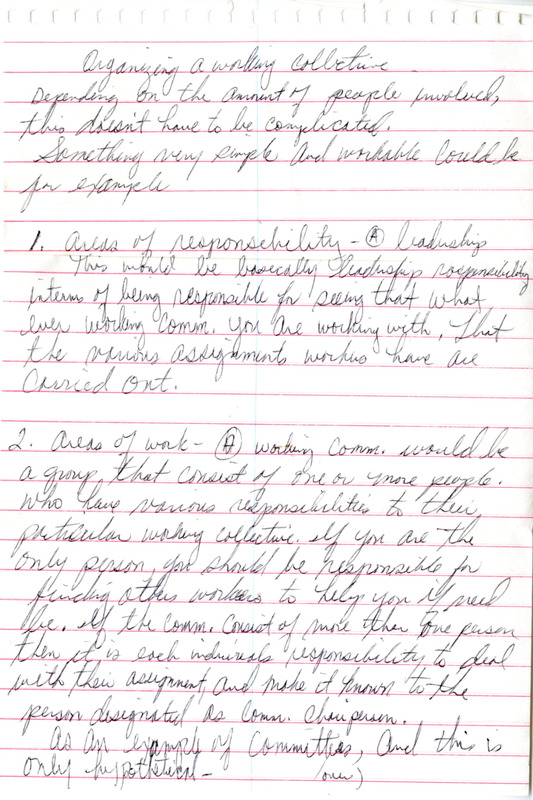 Organizing a working collective
Depending on the amount of people involved,
this doesn't have to be complicated.
Something very simple and workable could be
for example
1. Areas of responsibility - Ⓐ leadership
This would be basically leadership responsibility
interms of being responsible for seeing that what
ever working comm. you are working with, that
the various assignments workers have are
Carried out.
2. Areas of work - Ⓐ working comm. would be
a group that consist of one or more people.
who have various responsibilities to their
particular working collective. If you are the
only person, you should be responsible for
finding others workers to help you if need
be. If the comm. Consist of more then one person
then it is each indivieuals responsibility to deal
with their assignment, and make it known to the
person designated as comm. Chairperson.
As an example of Committies, And this is
only hypothetical -
(over)